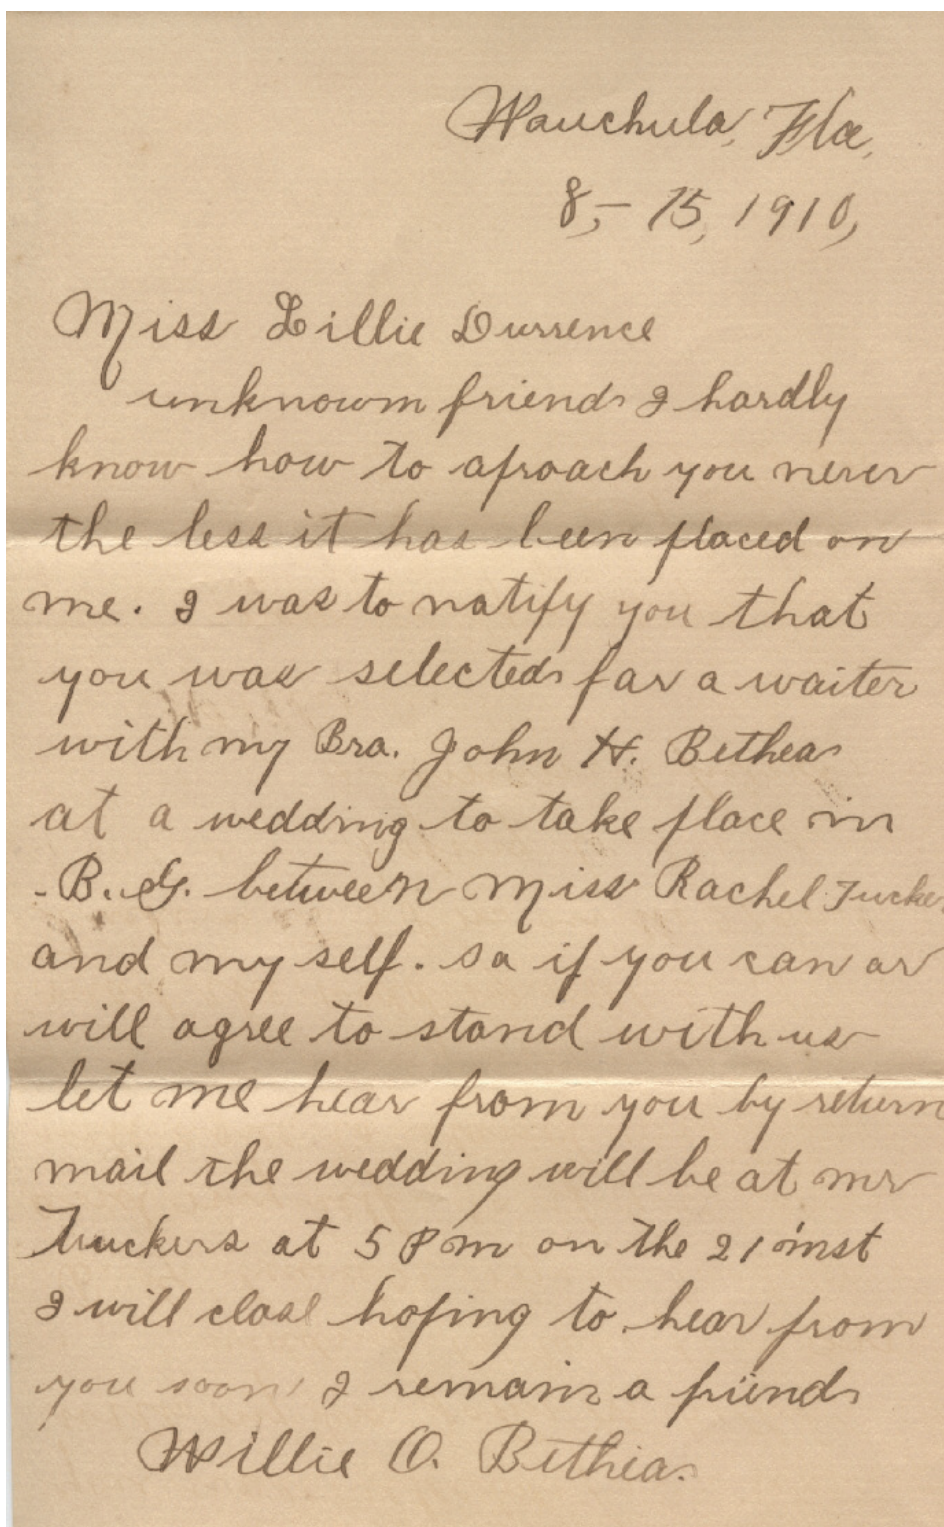 Wauchula, Fla,
8,- 15, 1910,
Miss Lillie Durrence
unknown friend I hardly
know how to aproach you never
the less it has been placed on
me. I was to notify you that
you was selected for a waiter
with my Bro. John H. Bethea
at a wedding to take place in
B. G. between Miss Rachel Tucker
and my self. so if you can or
will agree to stand with us
let me hear from you by return
mail the wedding will be at mr
Tuckers at 5 P m on the 21 inst
I will close hoping to hear from
you soon I remain a friend
Willie O. Bethea.